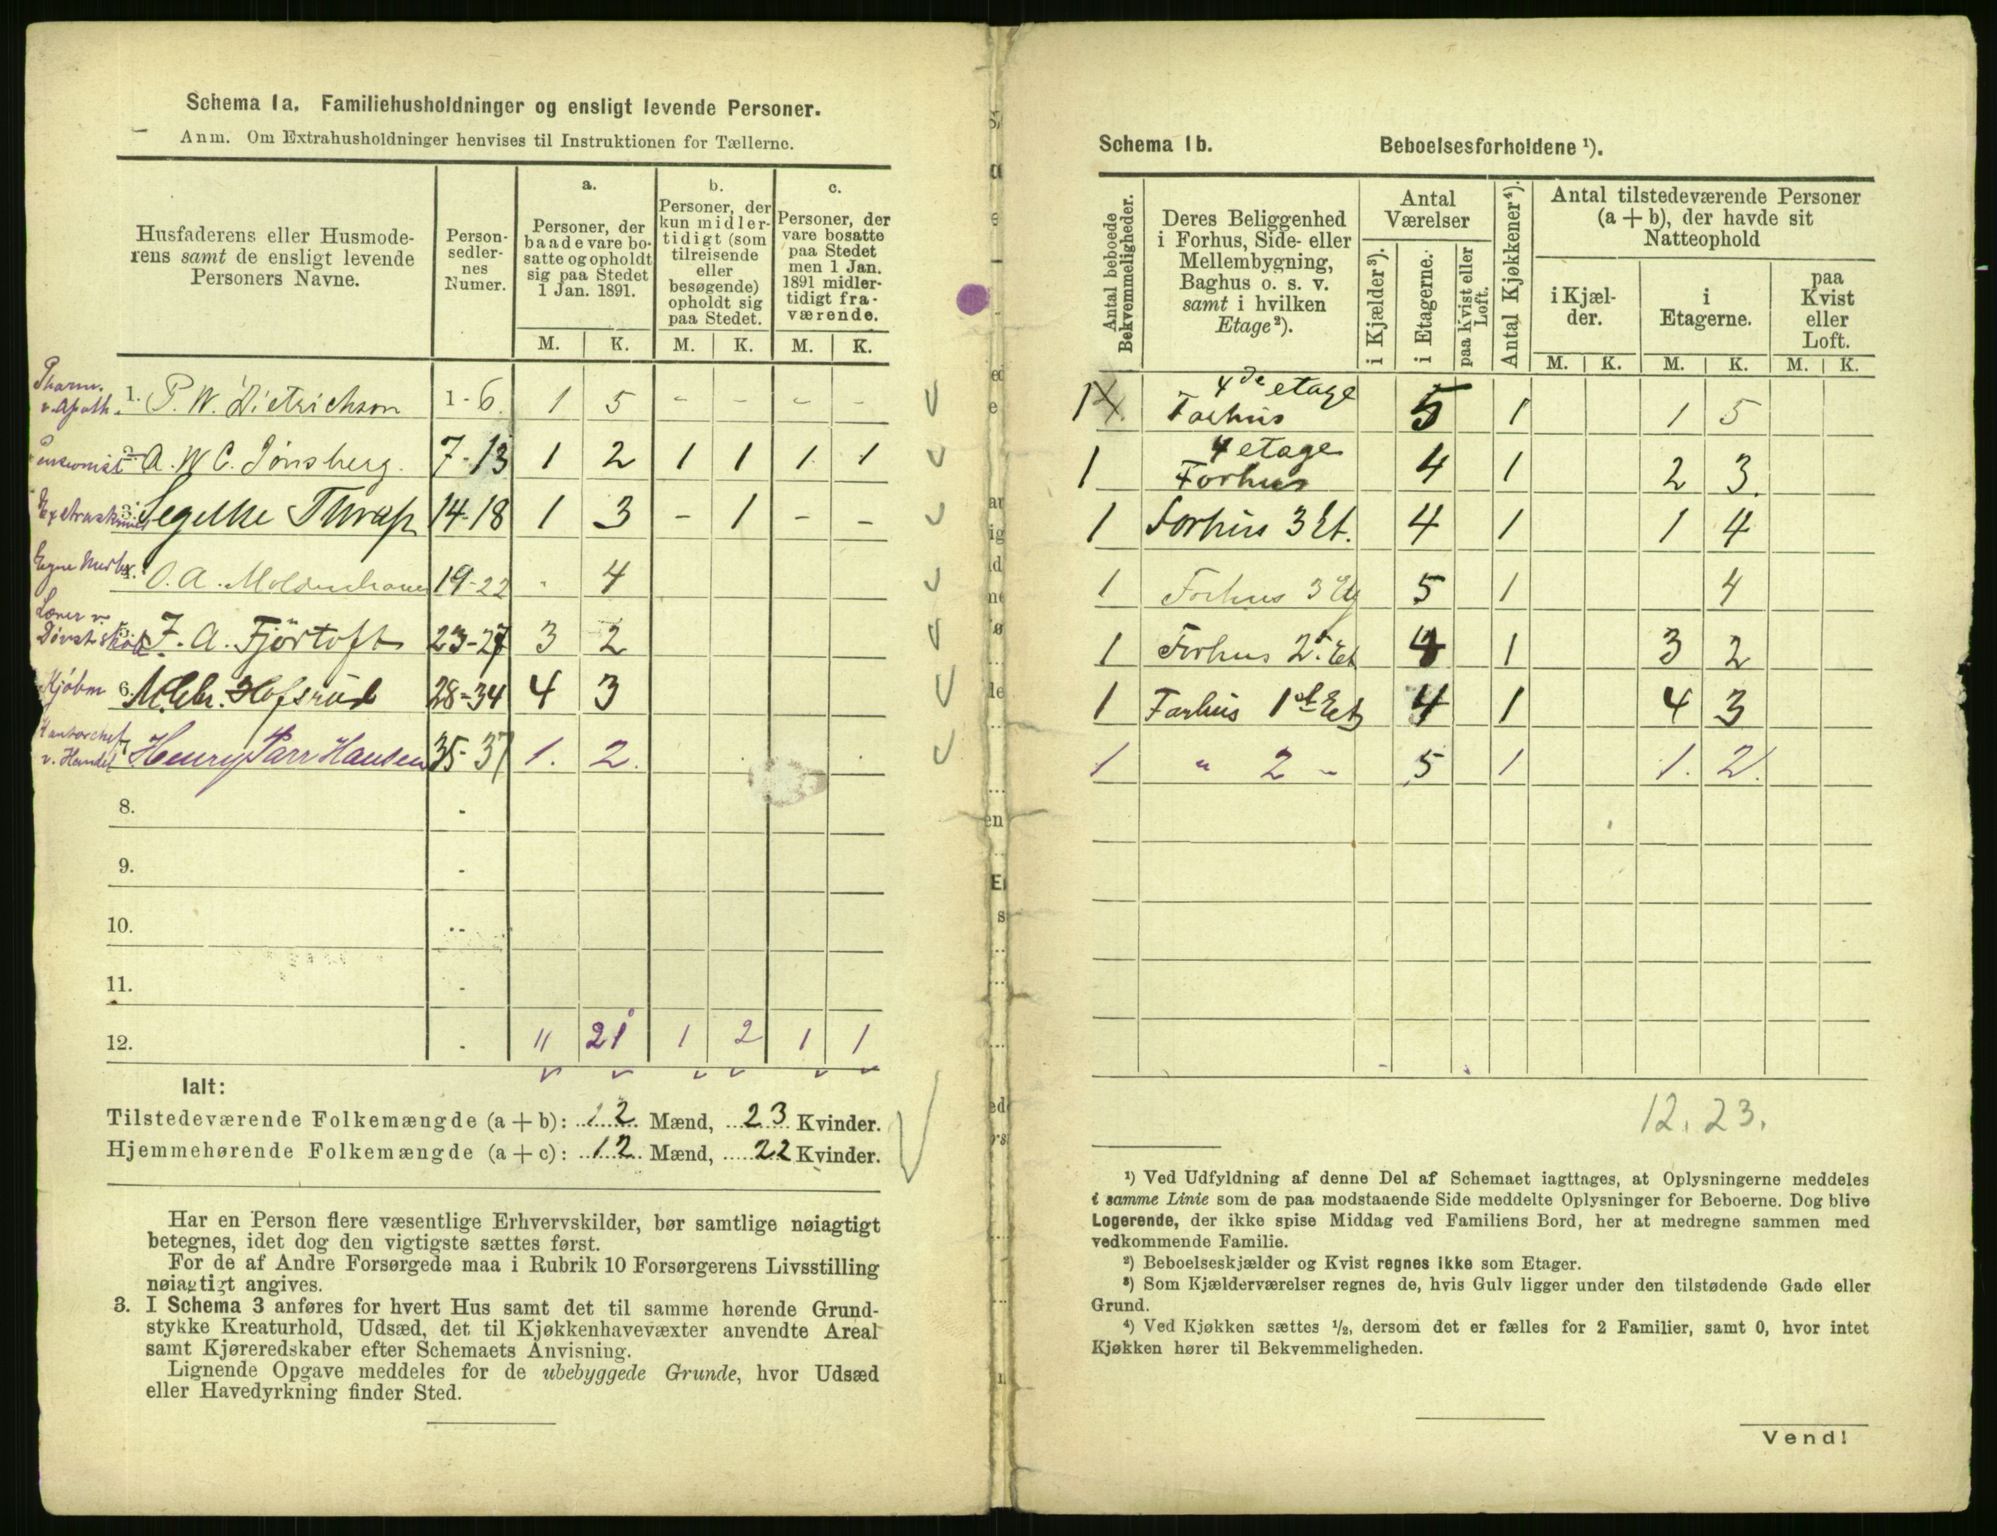 Schema 1a. Familiehusholdninger og ensligt levende Personer.
Anm. Om Extrahusholdninger henvises til Instruktionen for Tællerne.
Husfaderens eller Husmode-
rens samt de ensligt levende
Personers Navne.
Person-
sedler-
nes
Numer.
a.
Personer, der
baade vare bo-
satte og opholdt
sig paa Stedet
1 Jan. 1891.
b.
Personer, der
kun midler-
tidigt (som
tilreisende
eller
besøgende)
opholdt sig
paa Stedet.
c.
Personer, der
vare bosatte
paa Stedet
men 1 Jan.
1891 midler-
tidigt fra-
værende.
M. K. M. K. M. K.
Pharm.
v. Apoth. 1. P. W. Dietrichson 1-6. 1 5 - - - -
2. A. W. C. Jønsberg. 7-13 1 2 1 1 1 1
3. Segelke Thrap 14-18 1 3 - 1 - -
O. A. Moldenhauer 19-22 - 4
Lærer v.
F. A. Fjörtoft 23-27 3 2
Kjöbm 6. M. Chr. Hofsrud 28-34 4 3
Kontorchef
v. Handel 7 Henry Parr Hansen 35-37 1. 2.
8.
9.
10.
11.
12. 11 21 1 2 1 1
Ialt:
Tilstedeværende Folkemængde (a + b): 12 Mænd, 23 Kvinder.
Hjemmehørende Folkemængde (a + c): 12 Mænd, 22 Kvinder.
Har en Person flere væsentlige Erhvervskilder, bør samtlige nøiagtigt
betegnes, idet dog den vigtigste sættes først.
For de af Andre Forsørgede maa i Rubrik 10 Forsørgerens Livsstilling
nøiagtigt angives.
3. I Schema 3 anføres for hvert Hus samt det til samme hørende Grund-
stykke Kreaturhold, Udsæd, det til Kjøkkenhavevæxter anvendte Areal
samt Kjøreredskaber efter Schemaets Anvisning.
Lignende Opgave meddeles for de ubebyggede Grunde, hvor Udsæd
eller Havedyrkning finder Sted.
Schema 1b. Beboelsesforholdene ¹).
Antal beboede
Bekvemmeligheder.
Deres Beliggenhed
i Forhus, Side- eller
Mellembygning,
Baghus o. s. v.
samt i hvilken
Etage²).
Antal
Værelser
i Kjælder³).
i Etagerne.
paa Kvist eller
Loft.
Antal Kjøkkener⁴).
Antal tilstedeværende Personer
(a + b), der havde sit
Natteophold
i Kjæl-
der.
i
Etagerne.
paa
Kvist
eller
Loft.
M. K. M. K. M. K.
4de etage
1 Forhus 5 1 1 5
4 etage
1 Forhus 4 1 2 3.
1 Forhus 3 Et. 4 1 1 4
1 Forhus 3 Et 5 1 4
1 Forhus 2. Et 4 1 3 2
1 Forhus 1st Et 4 1 4 3
1 " 2 - 5 1 1. 2.
12. 23.
¹) Ved Udfyldning af denne Del af Schemaet iagttages, at Oplysningerne meddeles
i samme Linie som de paa modstaaende Side meddelte Oplysninger for Beboerne. Dog blive
Logerende, der ikke spise Middag ved Familiens Bord, her at medregne sammen med
vedkommende Familie.
²) Beboelseskjælder og Kvist regnes ikke som Etager.
³) Som Kjælderværelser regnes de, hvis Gulv ligger under den tilstødende Gade eller
Grund.
⁴) Ved Kjøkken sættes ½, dersom det er fælles for 2 Familier, samt 0, hvor intet
Kjøkken hører til Bekvemmeligheden.
Vend!